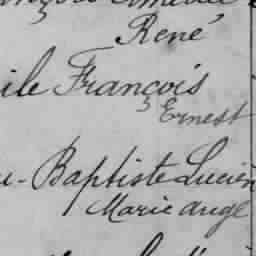 René
ile François
Ernest
-Baptiste Lucien
Marie ange